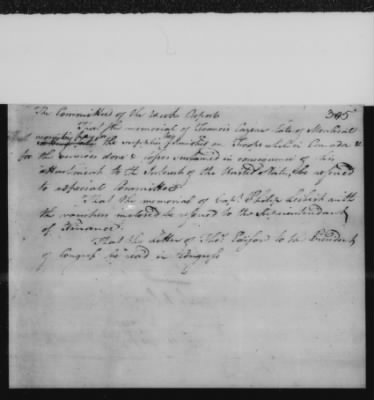 The Committee of the Week Report 305
That the memorial of Francis Cazeau late of Montreal
the supplies furnished our Troops whilst in Canada &
for the services done & losses sustained in consequence of his
attachment to the Interests of the United States, be referred
to a special Committee
That the memorial of Capt Philip Liebert with
the vouchers inclosed be referred to the Superintendant
of Finance.
That the Letter of Thos to the President
of Congress be read in Congress